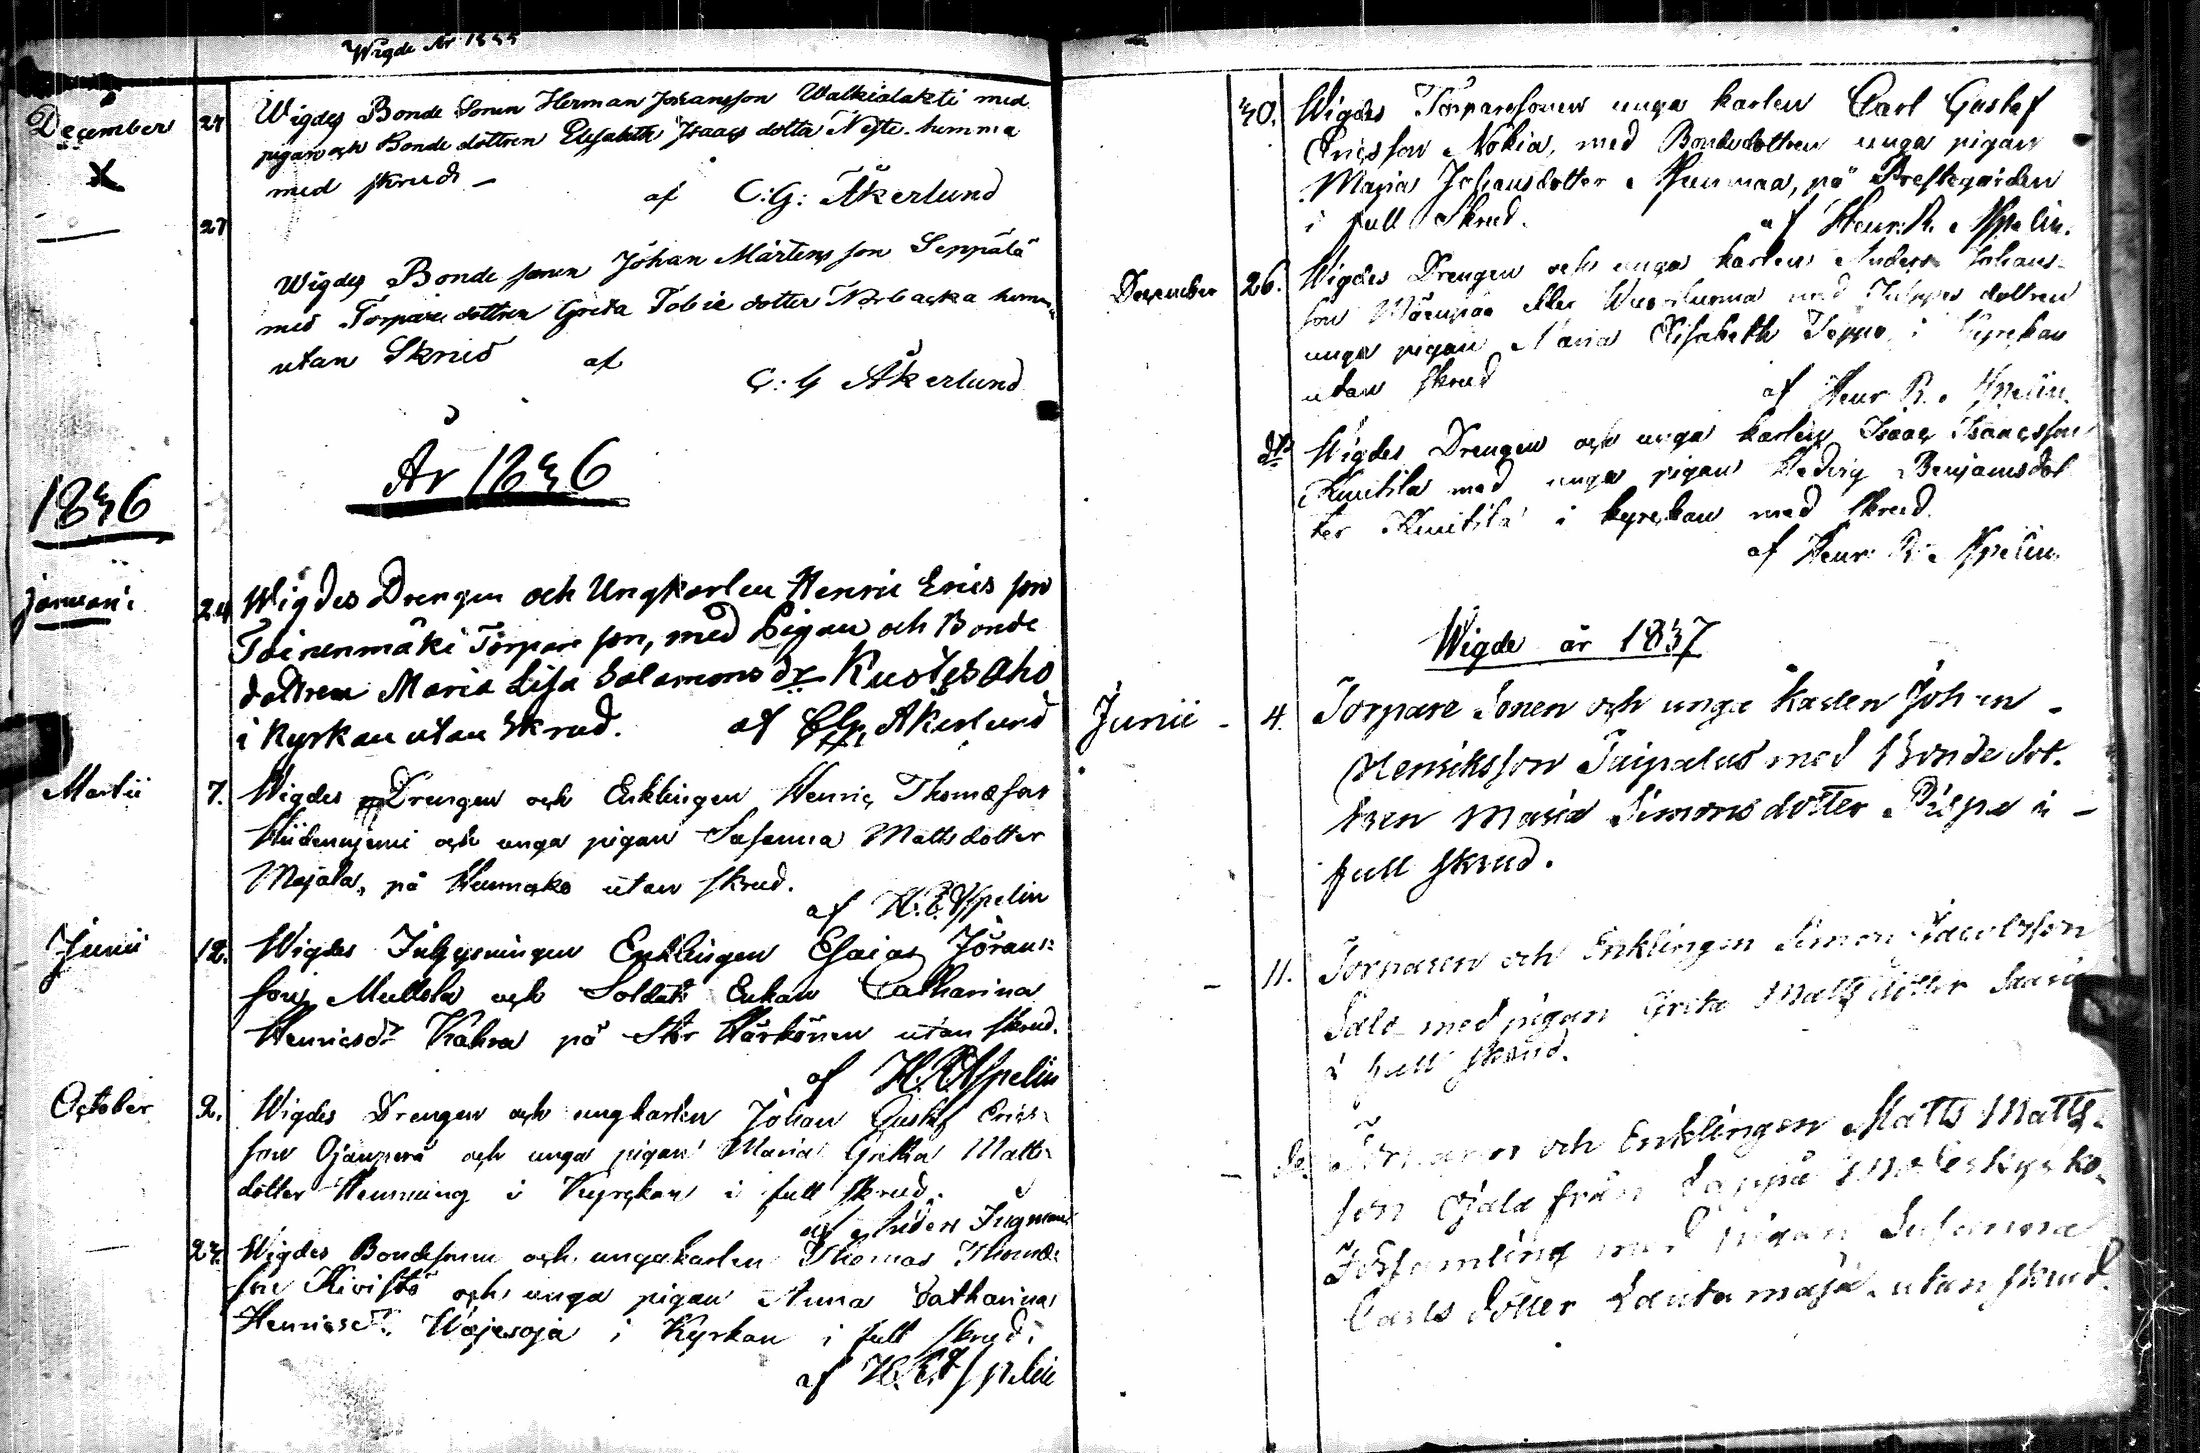 Wigde År 1835
December 27 Wigdes Bonde Sonen Herman Johansson Walkialakti med
pigan och Bonde dottren Elisabeth Isaacs dotter hemma
med skrud –
af C: G: Åkerlund
27
Wigdes Bonde sonen Johan Mårtensson Seppälä
med Torpare dottren Greta Tobie dotter hemma
utan Skrud af
C: G Åkerlund
År 1836
1836
Januari 24 Wigdes Drengen och Ungkarlen Henric Erics son
Toinenmäki Torpare son, med Pigan och Bonde
dottren Maria Lisa Salomons dr Kuolesaho
i Kyrkan utan Skrud. af CG Åkerlund
Martii 7. Wigdes Drengen och Enklingen Henric Thomæson
och unga pigan Susanna Matts dotter
Majala, på utan skrud.
af H. R. Aspelin
Junii 12. Wigdes Inhysningen Enklingen Esaias Jörans-
son och Soldats Enkan Catharina
Henricsdr på Stor Härkönen utan skrud.
af H. R. Aspelin
October 2. Wigdes Drengen och ungkarlen Johan Gustaf Erics-
son Ojanperä och unga pigan Maria Gretha Matts-
dotter Hemming i Kyrckan i full skrud.
af Anders Ingman
— 24. Wigdes Bondesonen och unga karlen Thomas Thomæ-
son Kivistö och unga pigan Anna Catharina
Henricsdr. i Kyrkan i full skrud.
af H. R. Aspelin
30. Wigdes Torparesonen unga karlen Carl Gustaf
Ericsson Nokia, med Bondedottren unga pigan
Maria Johansdotter på Prestegården
i full Skrud. af Henr. R. Aspelin.
December 26. Wigdes Drengen och unga karlen Anders Johans-
son eller med dottren
unga pigan Maria Elisabeth Seppo, i Kyrckan
utan skrud
af Henr R. Aspelin.
do Wigdes Drengen och unga karlen Isaac Isaacsson
Knuttila med unga pigan Hedvig Benjamsdot
ter Knuttila i kyrckan med skrud.
af Henr. R. Aspelin.
Wigde år 1837
Junii – 4. Torpare Sonen och unga Karlen Johan –
Henriksson Taipalus med Bonde dot-
tren Maria Simons dotter Pispa i –
full skrud.
– 11. Torparen och Enklingen Simon Jacobsson
Salo med pigan Greta Matts dotter
i full skrud.
– do Torparen och Enklingen Matts Matts-
son Ojala från Lappo Moderkyrko-
Församling med pigan Susanna
Carls dotter Lautamaja utan skrud.